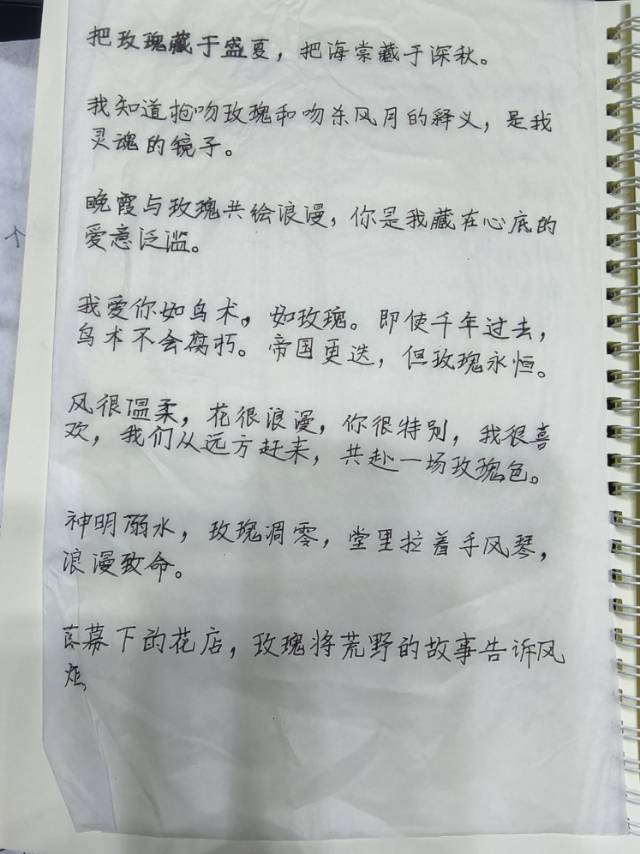 把玫瑰藏于盛夏，把海棠藏于深秋。
我知道抢吻玫瑰和吻杀风月的释义，是我
灵魂的镜子。
晚霞与玫瑰共绘浪漫，你是我藏在心底的
爱意泛滥。
我爱你如乌木。如玫瑰。即使千年过去，
乌木不会腐朽。帝国更迭，但玫瑰永恒。
风很温柔，花很浪漫，你很特别，我很喜
欢，我们从远方赶来，共赴一场玫瑰包。
神明溺水，玫瑰凋零，堂里拉着手风琴，
浪漫致命。
幕下的花店，玫瑰将荒野的故事告诉风